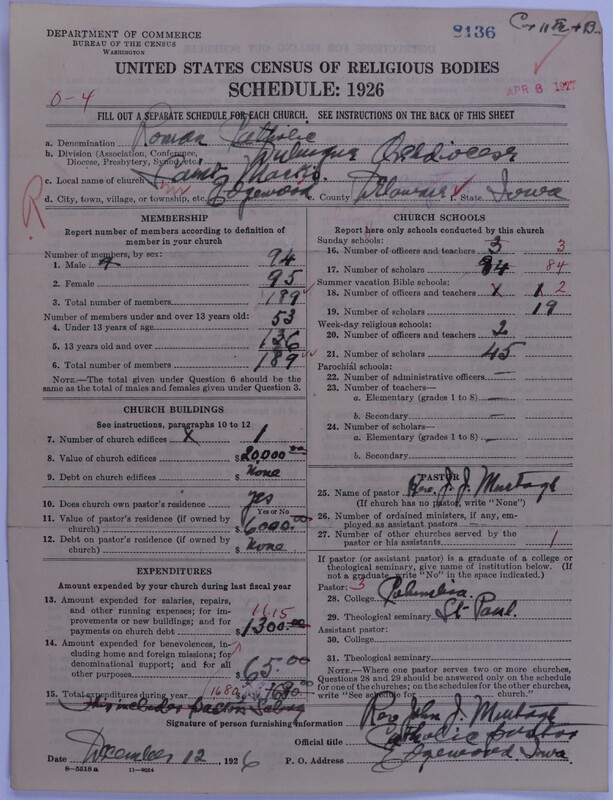 DEPARTMENT OF COMMERCE
BUREAU OF THE CENSUS
WASHINGTON
8136
UNITED STATES CENSUS OF RELIGIOUS BODIES
SCHEDULE: 1926
APR 8 1927
0-4
FILL OUT A SEPARATE SCHEDULE FOR EACH CHURCH. SEE INSTRUCTIONS ON THE BACK OF THIS SHEET
a. Denomination Roman Catholic
b. Division (Association, Conference, Diocese, Presbytery, Synod, etc.) Dubuque
c. Local name of church
d. City, town, village, or township, etc. Edgewood e. County Delaware f. State Iowa
MEMBERSHIP
Report number of members according to definition of
member in your church
Number of members, by sex:
1. Male 94
2. Female 95
3. Total number of members 189
Number of members under and over 13 years old:
4. Under 13 years of age 53
5. 13 years old and over 136
6. Total number of members 189
NOTE.—The total given under Question 6 should be
the same as the total of males and females given under Question 3.
CHURCH BUILDINGS
See instructions, paragraphs 10 to 12
7. Number of church edifices X 1
8. Value of church edifices $ 20,000
9. Debt on church edifices $ None
10. Does church own pastor's residence yes
Yes or No
11. Value of pastor's residence (if owned by
church) $ 6000.00
12. Debt on pastor's residence (if owned by
church) $ None
EXPENDITURES
Amount expended by your church during last fiscal year
13. Amount expended for salaries, repairs,
and other running expenses; for im-
provements or new buildings; and for
payments on church debt 1615 $ 1300.00
14. Amount expended for benevolences, in-
cluding home and foreign missions; for
denominational support; and for all
other purposes $ 65.00
15. Total expenditures during year 1680
This includes Pastor Salary
CHURCH SCHOOLS
Report here only schools conducted by this church
Sunday schools:
16. Number of officers and teachers 3 3
17. Number of scholars 84 84
Summer vacation Bible schools:
18. Number of officers and teachers X 2
19. Number of scholars 19
Week-day religious schools:
20. Number of officers and teachers 2
21. Number of scholars 45
Parochial schools:
22. Number of administrative officers —
23. Number of teachers—
a. Elementary (grades 1 to 8) —
b. Secondary —
24. Number of scholars—
a. Elementary (grades 1 to 8) —
b. Secondary
PASTOR
25. Name of pastor Rev. J. J. Murtagh
(If church has no pastor, write "None")
26. Number of ordained ministers, if any, em-
ployed as assistant pastors —
27. Number of other churches served by the
pastor or his assistants 1
If pastor (or assistant pastor) is a graduate of a college or
theological seminary, give name of institution below. (If
not a graduate, write "No" in the space indicated.)
Pastor: 3
28. College Columbia
29. Theological seminary St Paul.
Assistant pastor:
30. College
31. Theological seminary
NOTE.—Where one pastor serves two or more churches,
Questions 28 and 29 should be answered only on the schedule
for one of the churches; on the schedules for the other churches,
write "See schedule for church."
Signature of person furnishing information Rev John J. Murtagh
Official title Catholic Pastor
Date December 12, 1926 P. O. Address Edgewood Iowa.
8—5518 a 11—9024